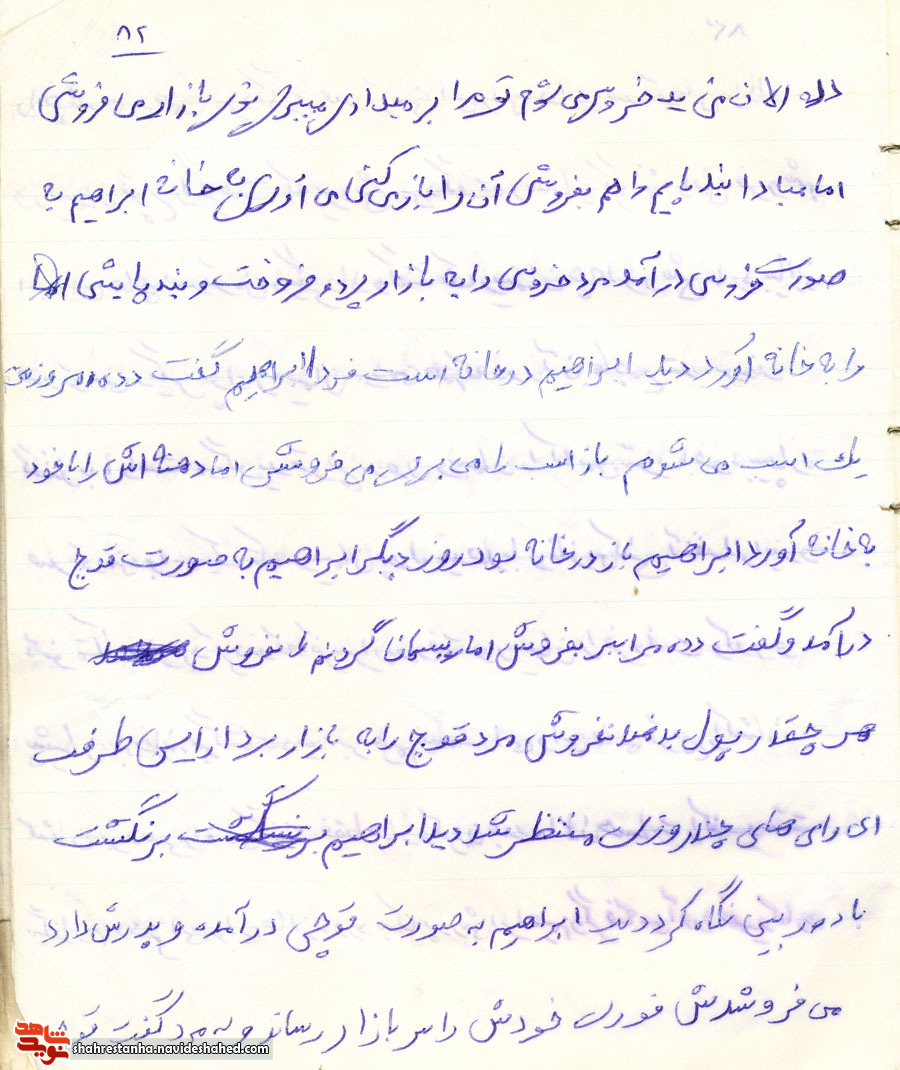 ۸۲
دده الان من یه خروس می شوم تو مرا بر میداری میبری توی بازار می فروشی
اما مبادا بند پایم را هم بفروشی آن را باز می کنی می آوری به خانه ابراهیم به
صورت خروسی درآمد مرد خروس را به بازار برده فروخت و بند پایش
را به خانه آورد دید ابراهیم در خانه است فردا ابراهیم گفت دده امروز من
یک اسب می شوم باز اسب را می بری می فروشی اما دهنه اش را با خود
به خانه آورد ابراهیم باز در خانه بود روز دیگر ابراهیم به صورت قوچ
درآمد و گفت دده مرا ببر بفروش اما ریسمان گردنم را نفروش
هر چقدر پول بدهند نفروش مرد قوچ را به بازار برد از این طرف
ای وای های چند روزی منتظر شد دید ابراهیم برنگشت
با دوربینی نگاه کرد دید ابراهیم به صورت قوچی در آمده و پدرش دارد
می فروشدش فوری خودش را سر بازار رساند و به مرد گفت
شاهد
نوید
shahrestanha.navideshahed.com